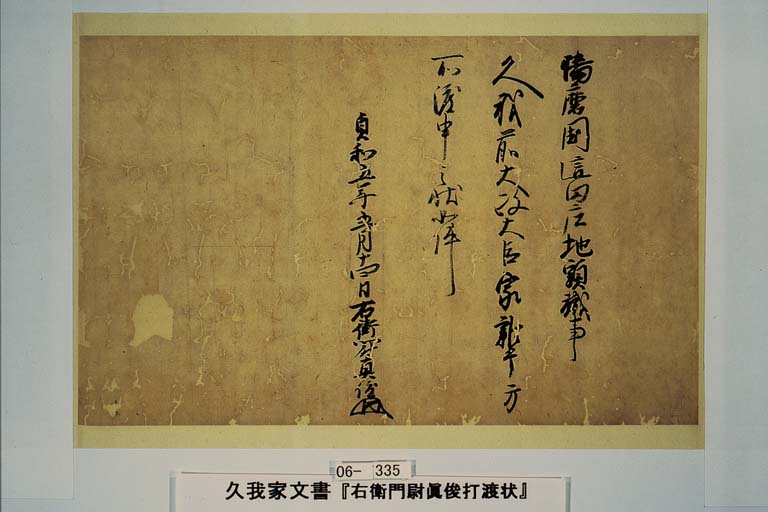 播磨国這田庄地頭職事
久我前大政大臣家雑掌方
所渡申之状如件
貞和五年弐月十四日右衛門尉真俊
06- 335
久我家文書『右衛門尉眞俊打渡状』